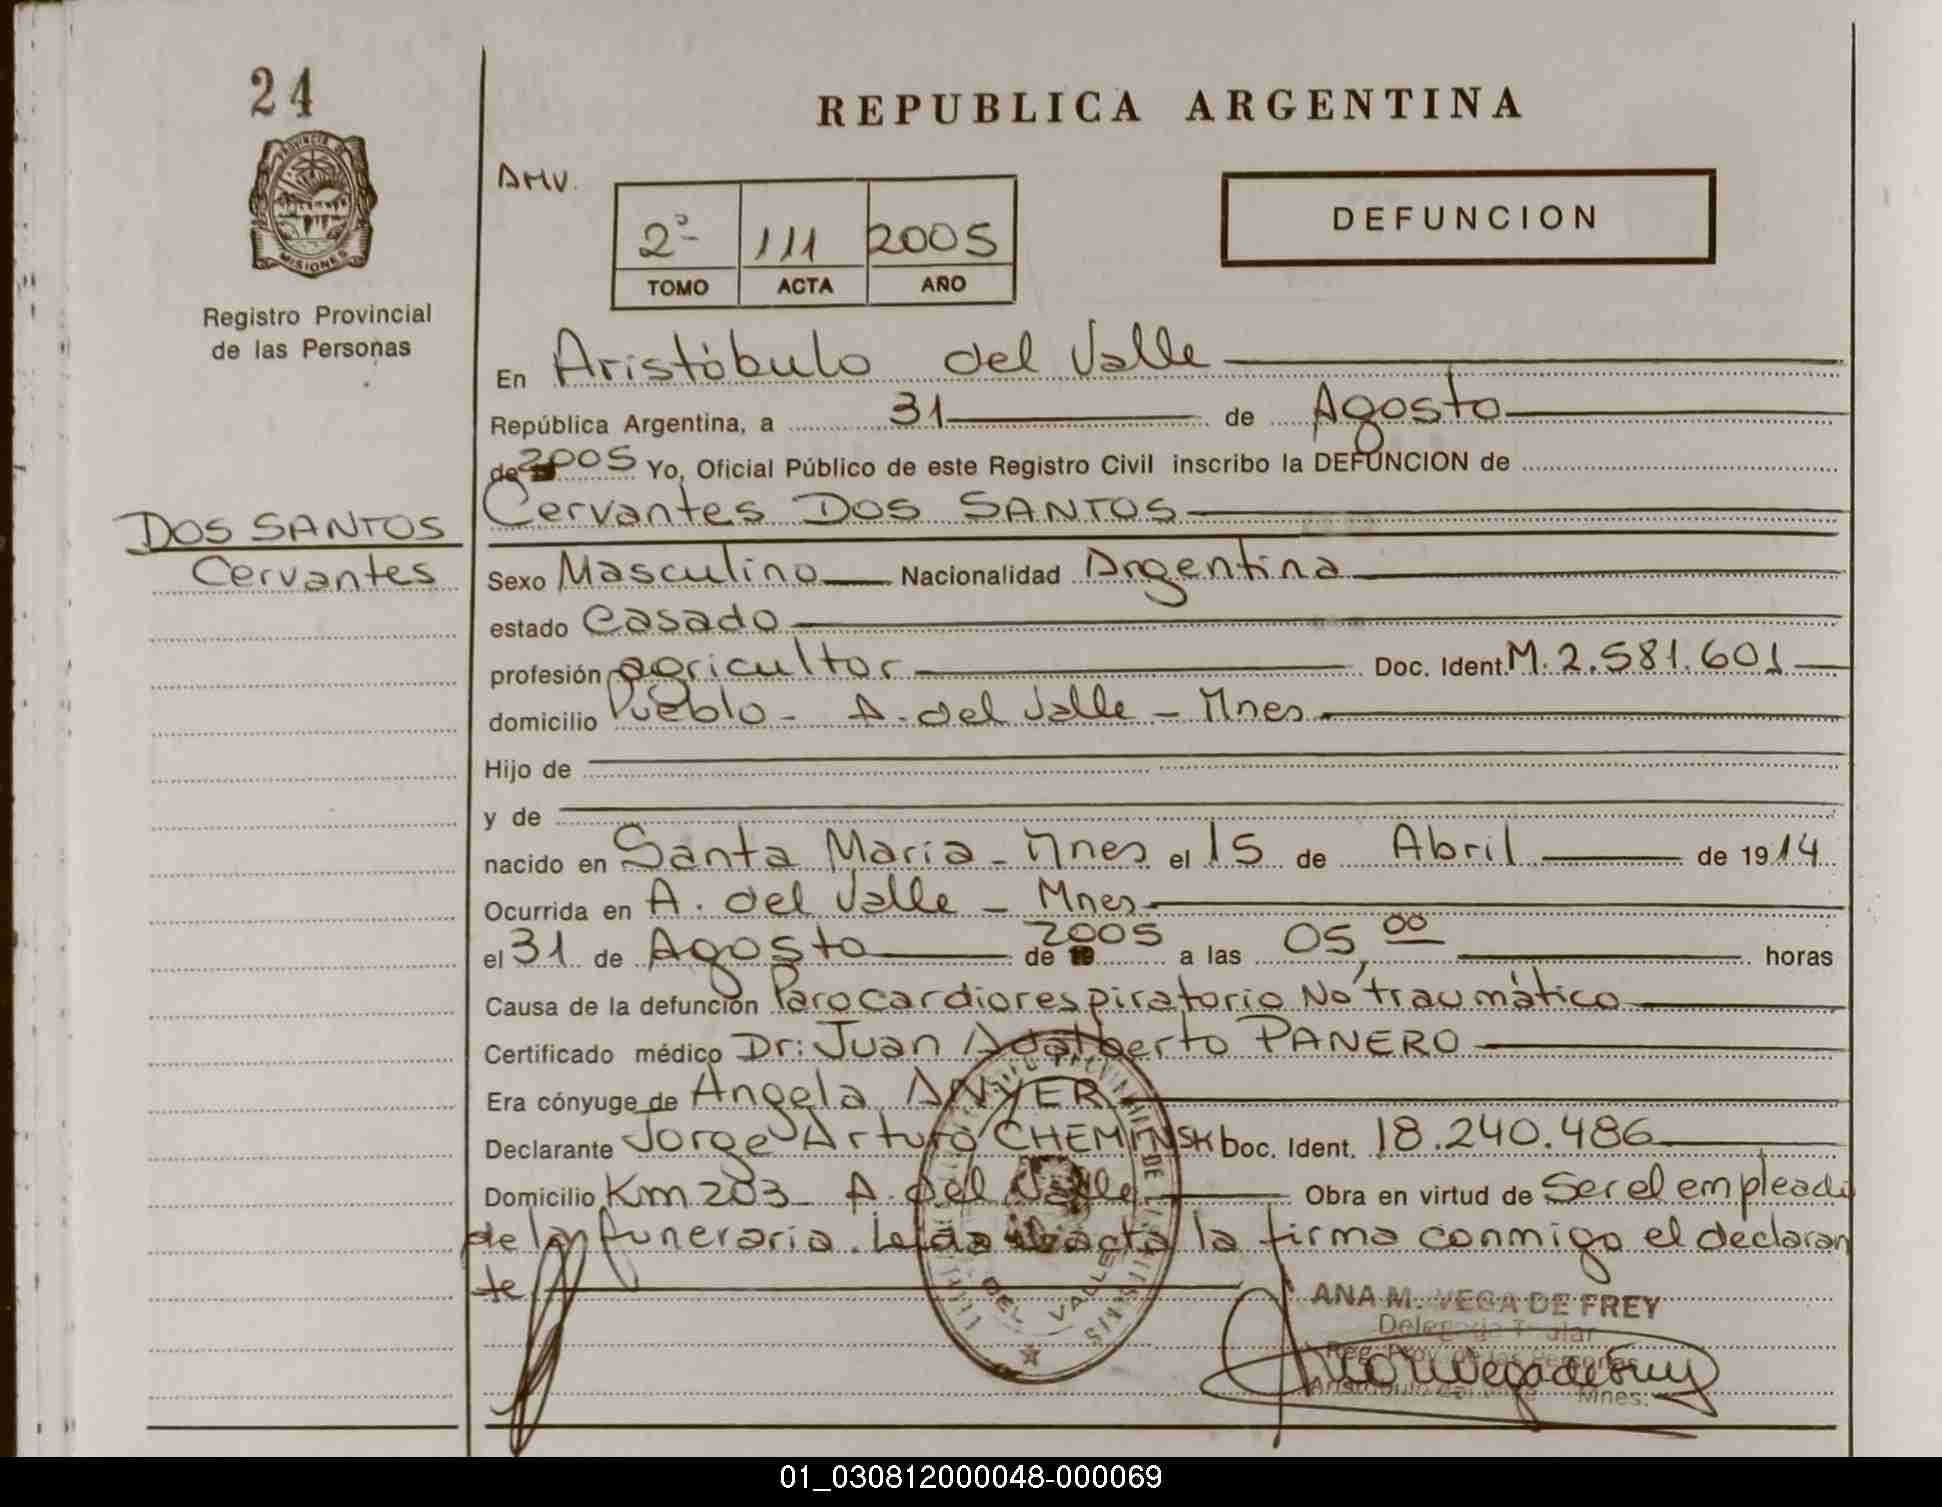 24
REPUBLICA ARGENTINA
PROVINCIA DE
MISIONES
Registro Provincial
de las Personas
AMV.
2º 111 2005
TOMO ACTA AÑO
DEFUNCION
En Aristóbulo del Valle
República Argentina, a 31 de Agosto
de 2005 Yo, Oficial Público de este Registro Civil inscribo la DEFUNCION de
Cervantes DOS SANTOS
DOS SANTOS
Cervantes
Sexo Masculino Nacionalidad Argentina
estado Casado
profesión agricultor Doc. Ident. M. 2.581.601
domicilio Pueblo - A. del Valle - Mnes
Hijo de
y de
nacido en Santa María - Mnes el 15 de Abril de 1914
Ocurrida en A. del Valle - Mnes
el 31 de Agosto de 2005 a las 05,00 horas
Causa de la defunción Parocardiorespiratorio No traumático
Certificado médico Dr: Juan Adalberto PANERO
Era cónyuge de Angela ANYER
Declarante Jorge Arturo CHEMINSKI Doc. Ident. 18.240.486
Domicilio Km 203 A. del Valle Obra en virtud de Ser el empleado
de la funeraria. Leída el acta la firma conmigo el declaran
te
DEL VALLE
ANA M. VEGA DE FREY
Delegada Titular
Reg. Prov. de las Personas
Aristóbulo del Valle Mnes.
01_030812000048-000069